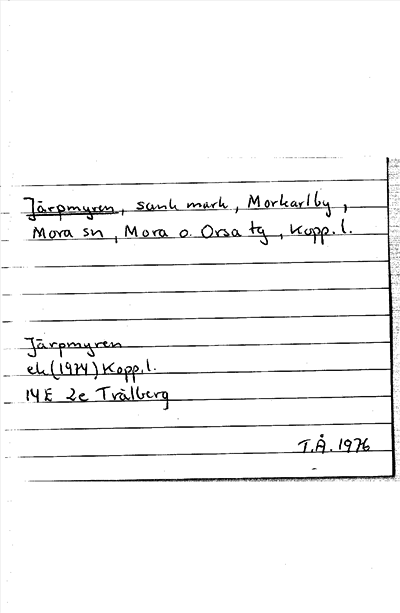 Järpmyren, sank mark, Morkarlby,
Mora sn, Mora o. Orsa tg, Kopp. l.
Järpmyren
ek (1974) Kopp. l.
14E 2e Trälberg
T.Å. 1976